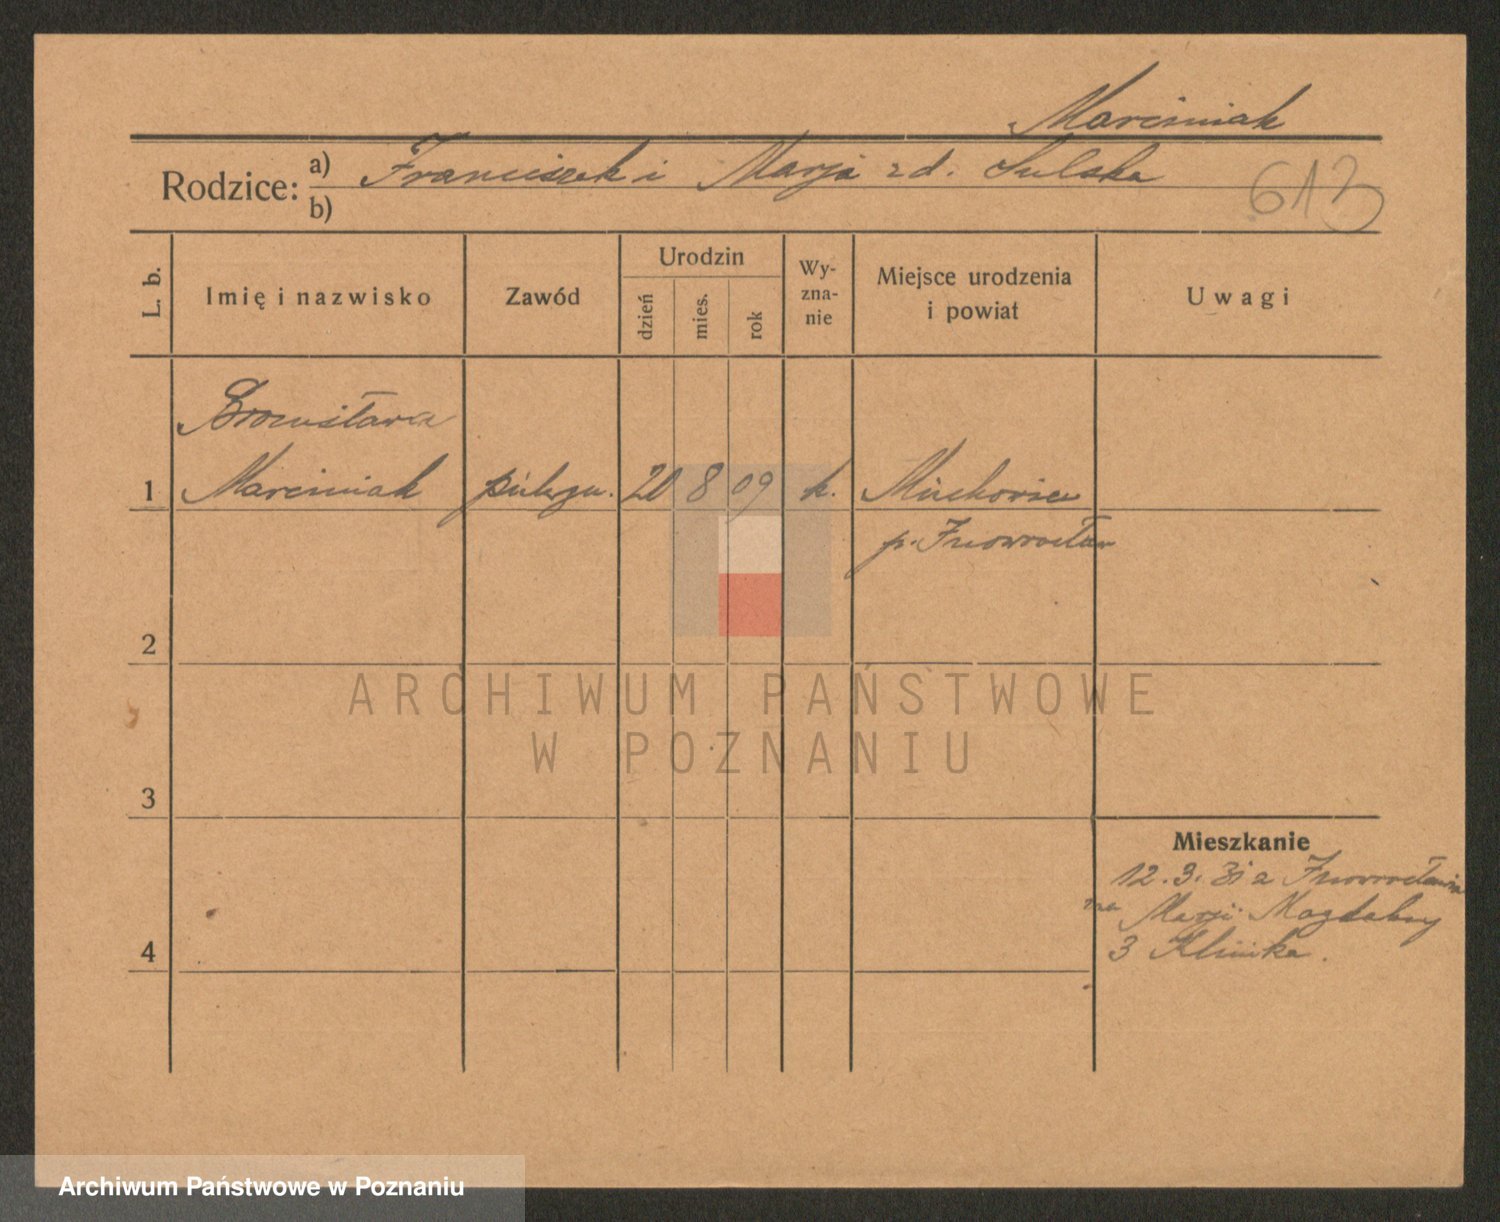 Marciniak
Rodzice: a) Franciszek i Marja z d. Sulska
b)
613
L. b.
Imię i nazwisko
Zawód
Urodzin
dzień
mies.
rok
Wy-
zna-
nie
Miejsce urodzenia
i powiat
Uwagi
Bronisława
1 Marciniak 20 8 09 k.
p. Inowrocław
2
3
4
Mieszkanie
12.3.31 z Inowrocławia
na Marji Magdaleny
3 Klinika.
ARCHIWUM PAŃSTWOWE
W POZNANIU
Archiwum Państwowe w Poznaniu